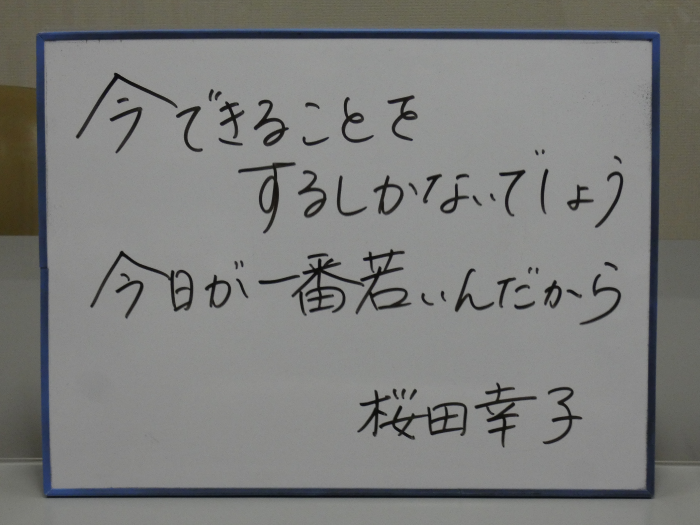 今できることを
するしかないでしょう
今日が一番若いんだから
桜田幸子